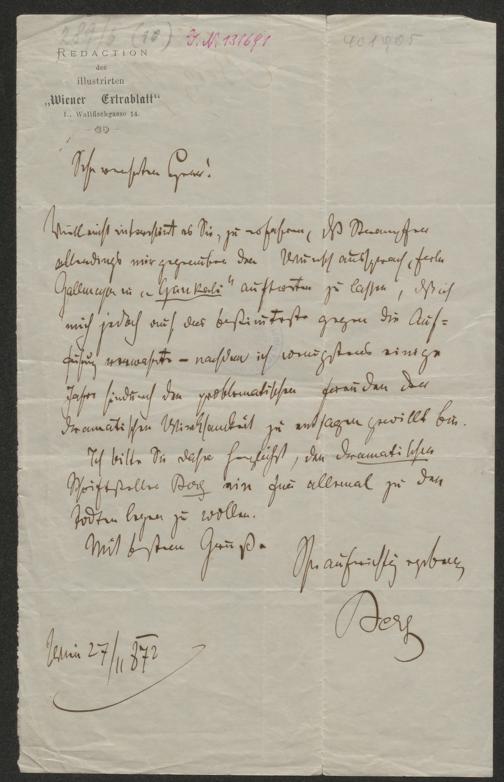 289/5 (10) I.N. 131691 401905
REDACTION
des
illustrirten
„Wiener Extrablatt“
I., Wallfischgasse 14.
Sehr werther Herr!
Vielleicht interessirt es Sie, zu erfahren, daß Strampfer
allendings mir gegenüber den Wunsch aussprach, Frln
Gallmeyer in „Hankerl“ auftreten zu lassen, daß ich
mich jedoch auf das bestimmteste gegen die Auf-
führung verwahrte – nachdem ich wenigstens einige
Jahre hindurch den problematischen Freuden der
dramatischen Wirksamkeit zu entsagen gewillt bin.
Ich bitte Sie daher herzlichst, den dramatischen
Schriftsteller Berg ein für allemal zu den
Todten legen zu wollen.
Mit bestem Gruße
Ihr aufrichtig ergebener
Berg
Wien 27/11 872